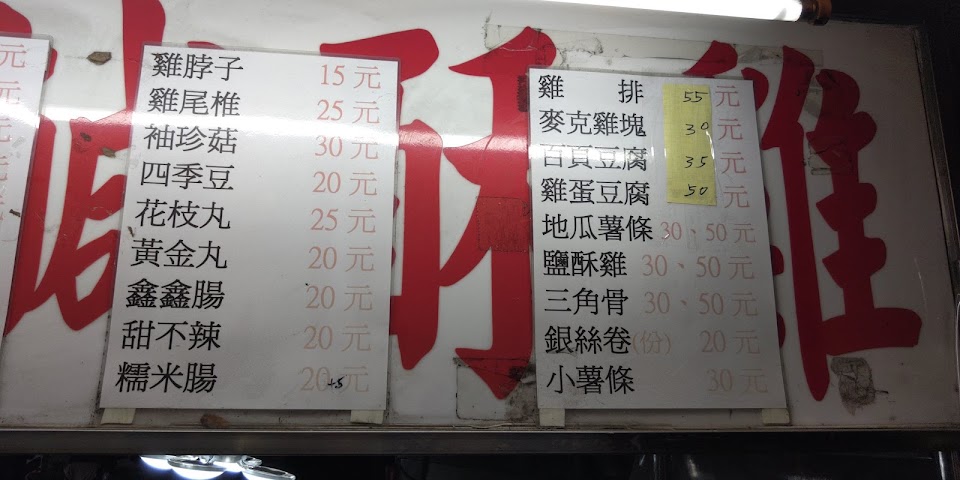 鹹酥雞
元
元
元
元
元
雞脖子 15元
雞尾椎 25元
袖珍菇 30元
四季豆 20元
花枝丸 25元
黃金丸 20元
鑫鑫腸 20元
甜不辣 20元
糯米腸 20+5元
雞排 55元
麥克雞塊 30元
百頁豆腐 35元
雞蛋豆腐 50元
地瓜薯條 30、50元
鹽酥雞 30、50元
三角骨 30、50元
銀絲卷(份) 20元
小薯條 30元